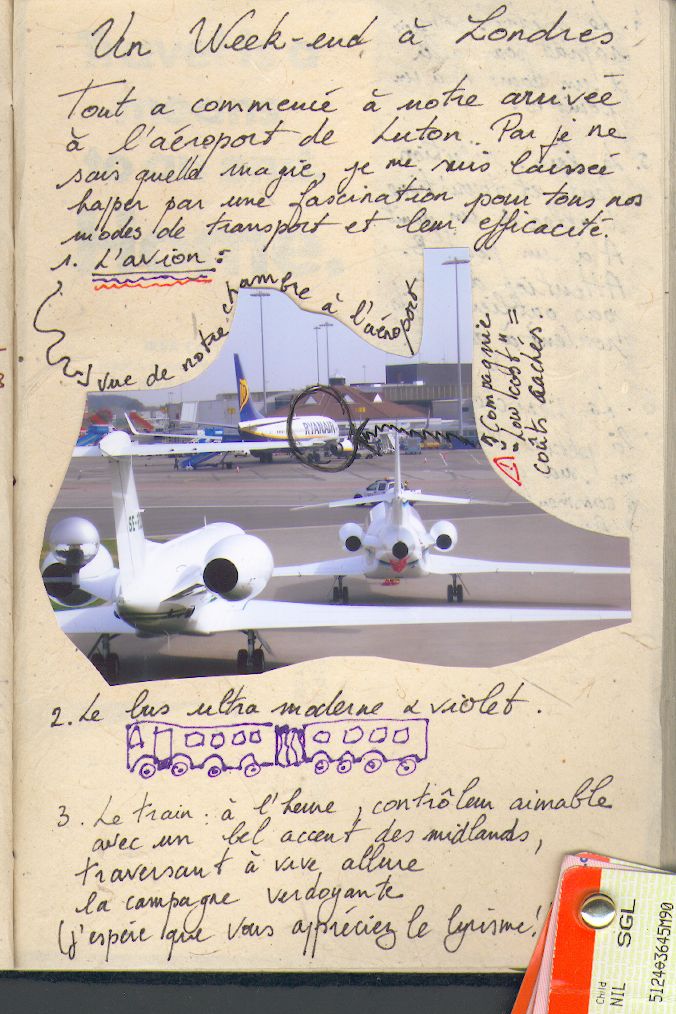 Un Week-end à Londres
Tout a commencé à notre arrivée
à l'aéroport de Luton. Par je ne
sais quelle magie, je me suis laissée
happer par une fascination pour tous nos
modes de transport et leur efficacité.
1. L'avion :
vue de notre chambre à l'aéroport
Compagnie
"low cost" =
coûts cachés
RYANAIR
2. Le bus ultra moderne & violet.
3. Le train : à l'heure, contrôleur aimable
avec un bel accent des midlands,
traversant à vive allure
la campagne verdoyante
(j'espère que vous appréciez le lyrisme!
Child
NIL
SGL
512403645M90